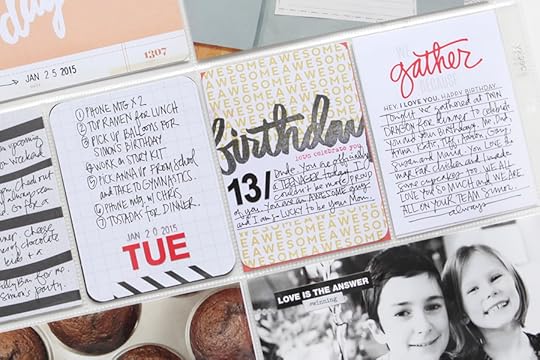 day
1307
JAN 25 2015
upcoming
weekend
① PHONE MTG X 2
② TOP RAMEN FOR LUNCH
③ PICK UP BALLOONS FOR
SIMON'S BIRTHDAY
④ WORK ON STORY KIT
⑤ PICK ANNA UP FROM SCHOOL
AND TAKE TO GYMNASTICS.
⑥ PHONE MTG W/ CHRIS.
⑦ TOSTADAS FOR DINNER.
JAN 20 2015
TUE
AWESOMEAWESOME
birthday
lets celebrate you
13/
Dude you are officially
a TEENAGER today.
couldn't be more PROUD
of you. You are an AWESOME guy
and I am so LUCKY to be your Mom.
gather
HEY. I LOVE YOU. HAPPY BIRTHDAY.
Tonight we gathered at TWIN
DRAGON for dinner to celebrate
you and your Birthday. Me, Dad,
and Mark. You LOVE the
and I made
cupcakes for you. WE ALL
LOVE you SO MUCH and WE ARE
ALL ON YOUR TEAM, Simon.
always.
cheese
of chocolate
kids +
Simon's party.
LOVE IS THE ANSWER
#winning